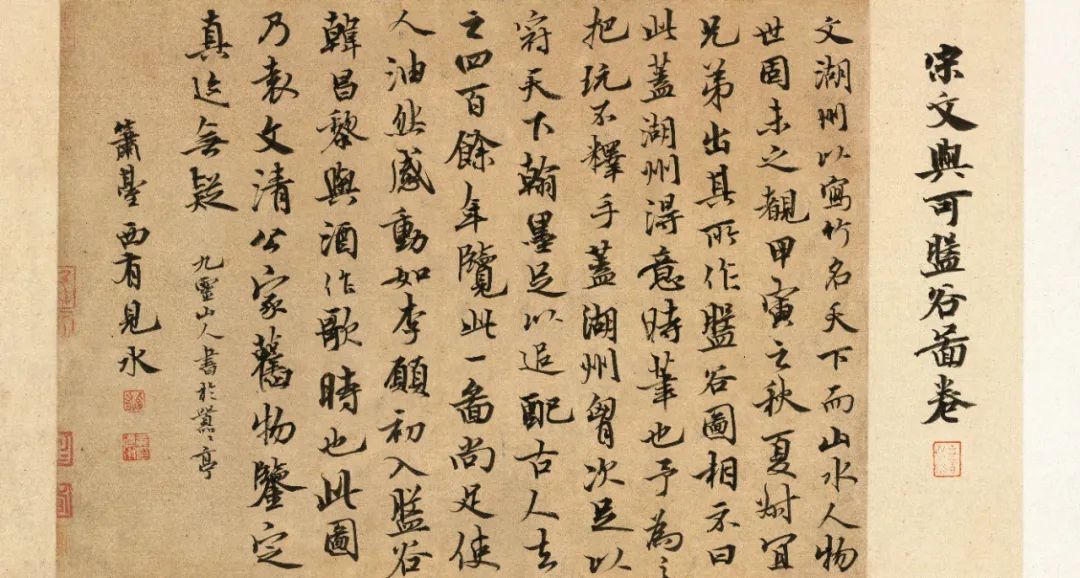 宋文與可盤谷啚卷
文湖州以寫竹名天下而山水人物
世固未之覩甲寅之秋夏宜
兄弟出其所作盤谷圖相示曰
此蓋湖州得意時筆也予為之
把玩不釋手蓋湖州胷次足以
天下翰墨足以追配古人去
之四百餘年覽此一啚尚足使
人油然感動如李愿初入盤谷
韓昌黎與酒作歌時也此圖
乃袁文清公家舊物鑒定
真迹無疑
九靈山人書於亭
簫臺西有見水